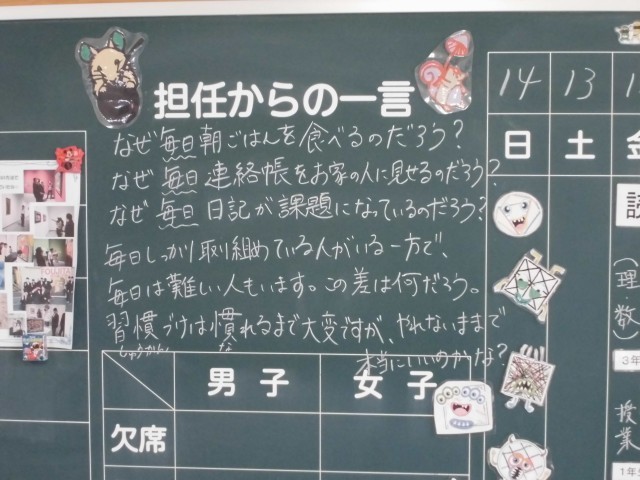 担任からの一言
なぜ毎日朝ごはんを食べるのだろう?
なぜ毎日連絡帳をお家の人に見せるのだろう?
なぜ毎日日記が課題になっているのだろう?
毎日しっかり取り組めている人がいる一方で、
毎日は難しい人もいます。この差は何だろう。
習慣づけは慣れるまで大変ですが、やれないままで
しゅうかん な
本当にいいのかな?
男子 女子
欠席
14 13 1
日 土 金
(理・数)
3年
授業
1年